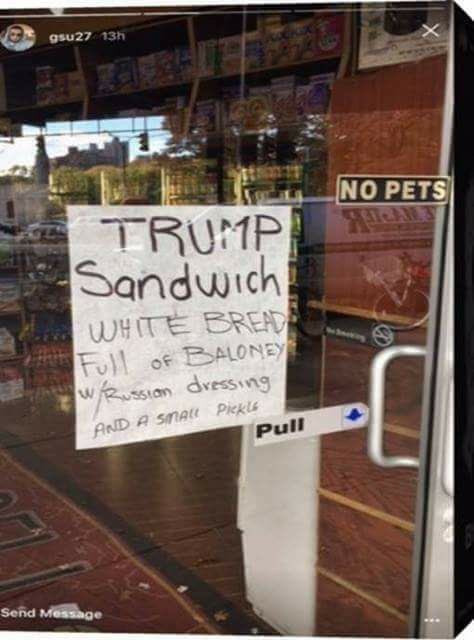 gsu27 13h
NO PETS
TRUMP
Sandwich
WHITE BREAD
Full OF BALONEY
W/Russian dressing
AND A SMALL PICKLE
No Smoking
Pull
Send Message